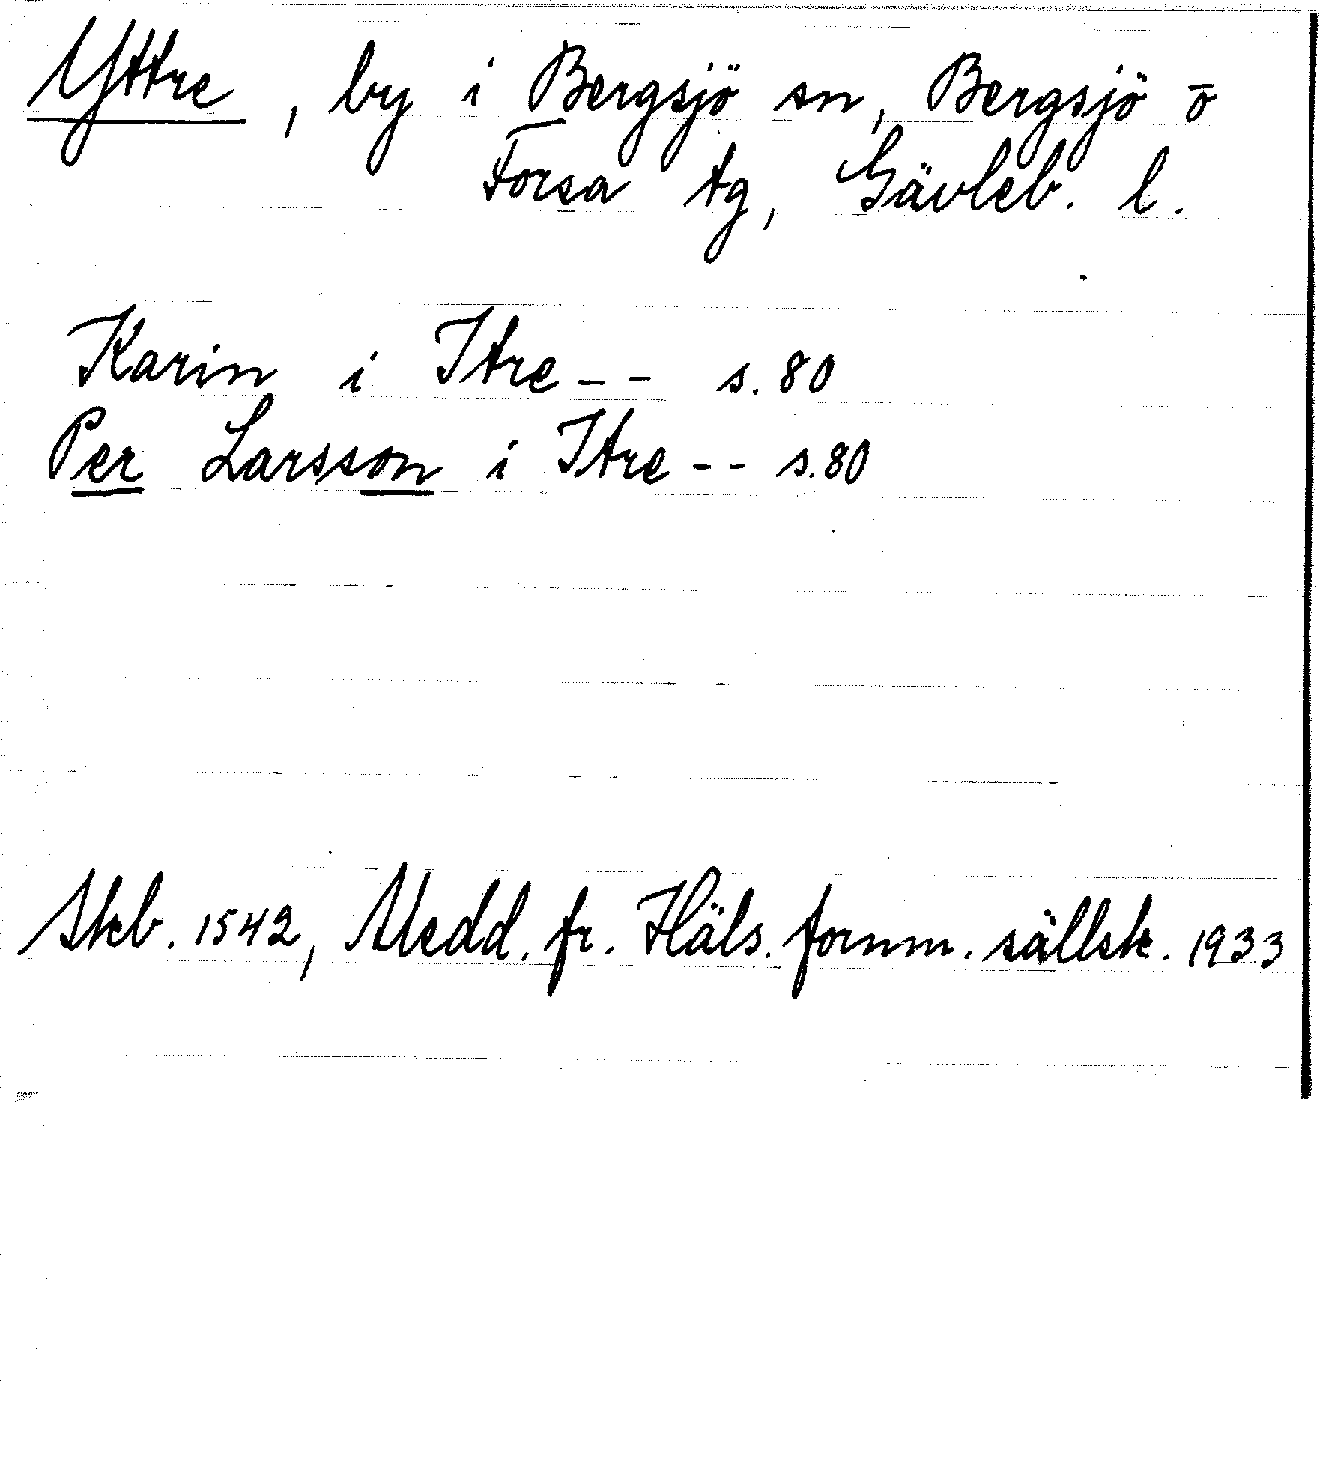 Yttre, by i Bergsjö sn, Bergsjö o
Forsa tg, Gävleb. l.
Karin i Itre-- s. 80
Per Larsson i Itre-- s. 80
Skb. 1542, Medd. fr. Häls. fornm. sällsk. 1933